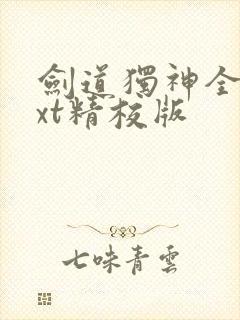 劍道獨神全
xt精校版
七味青雲